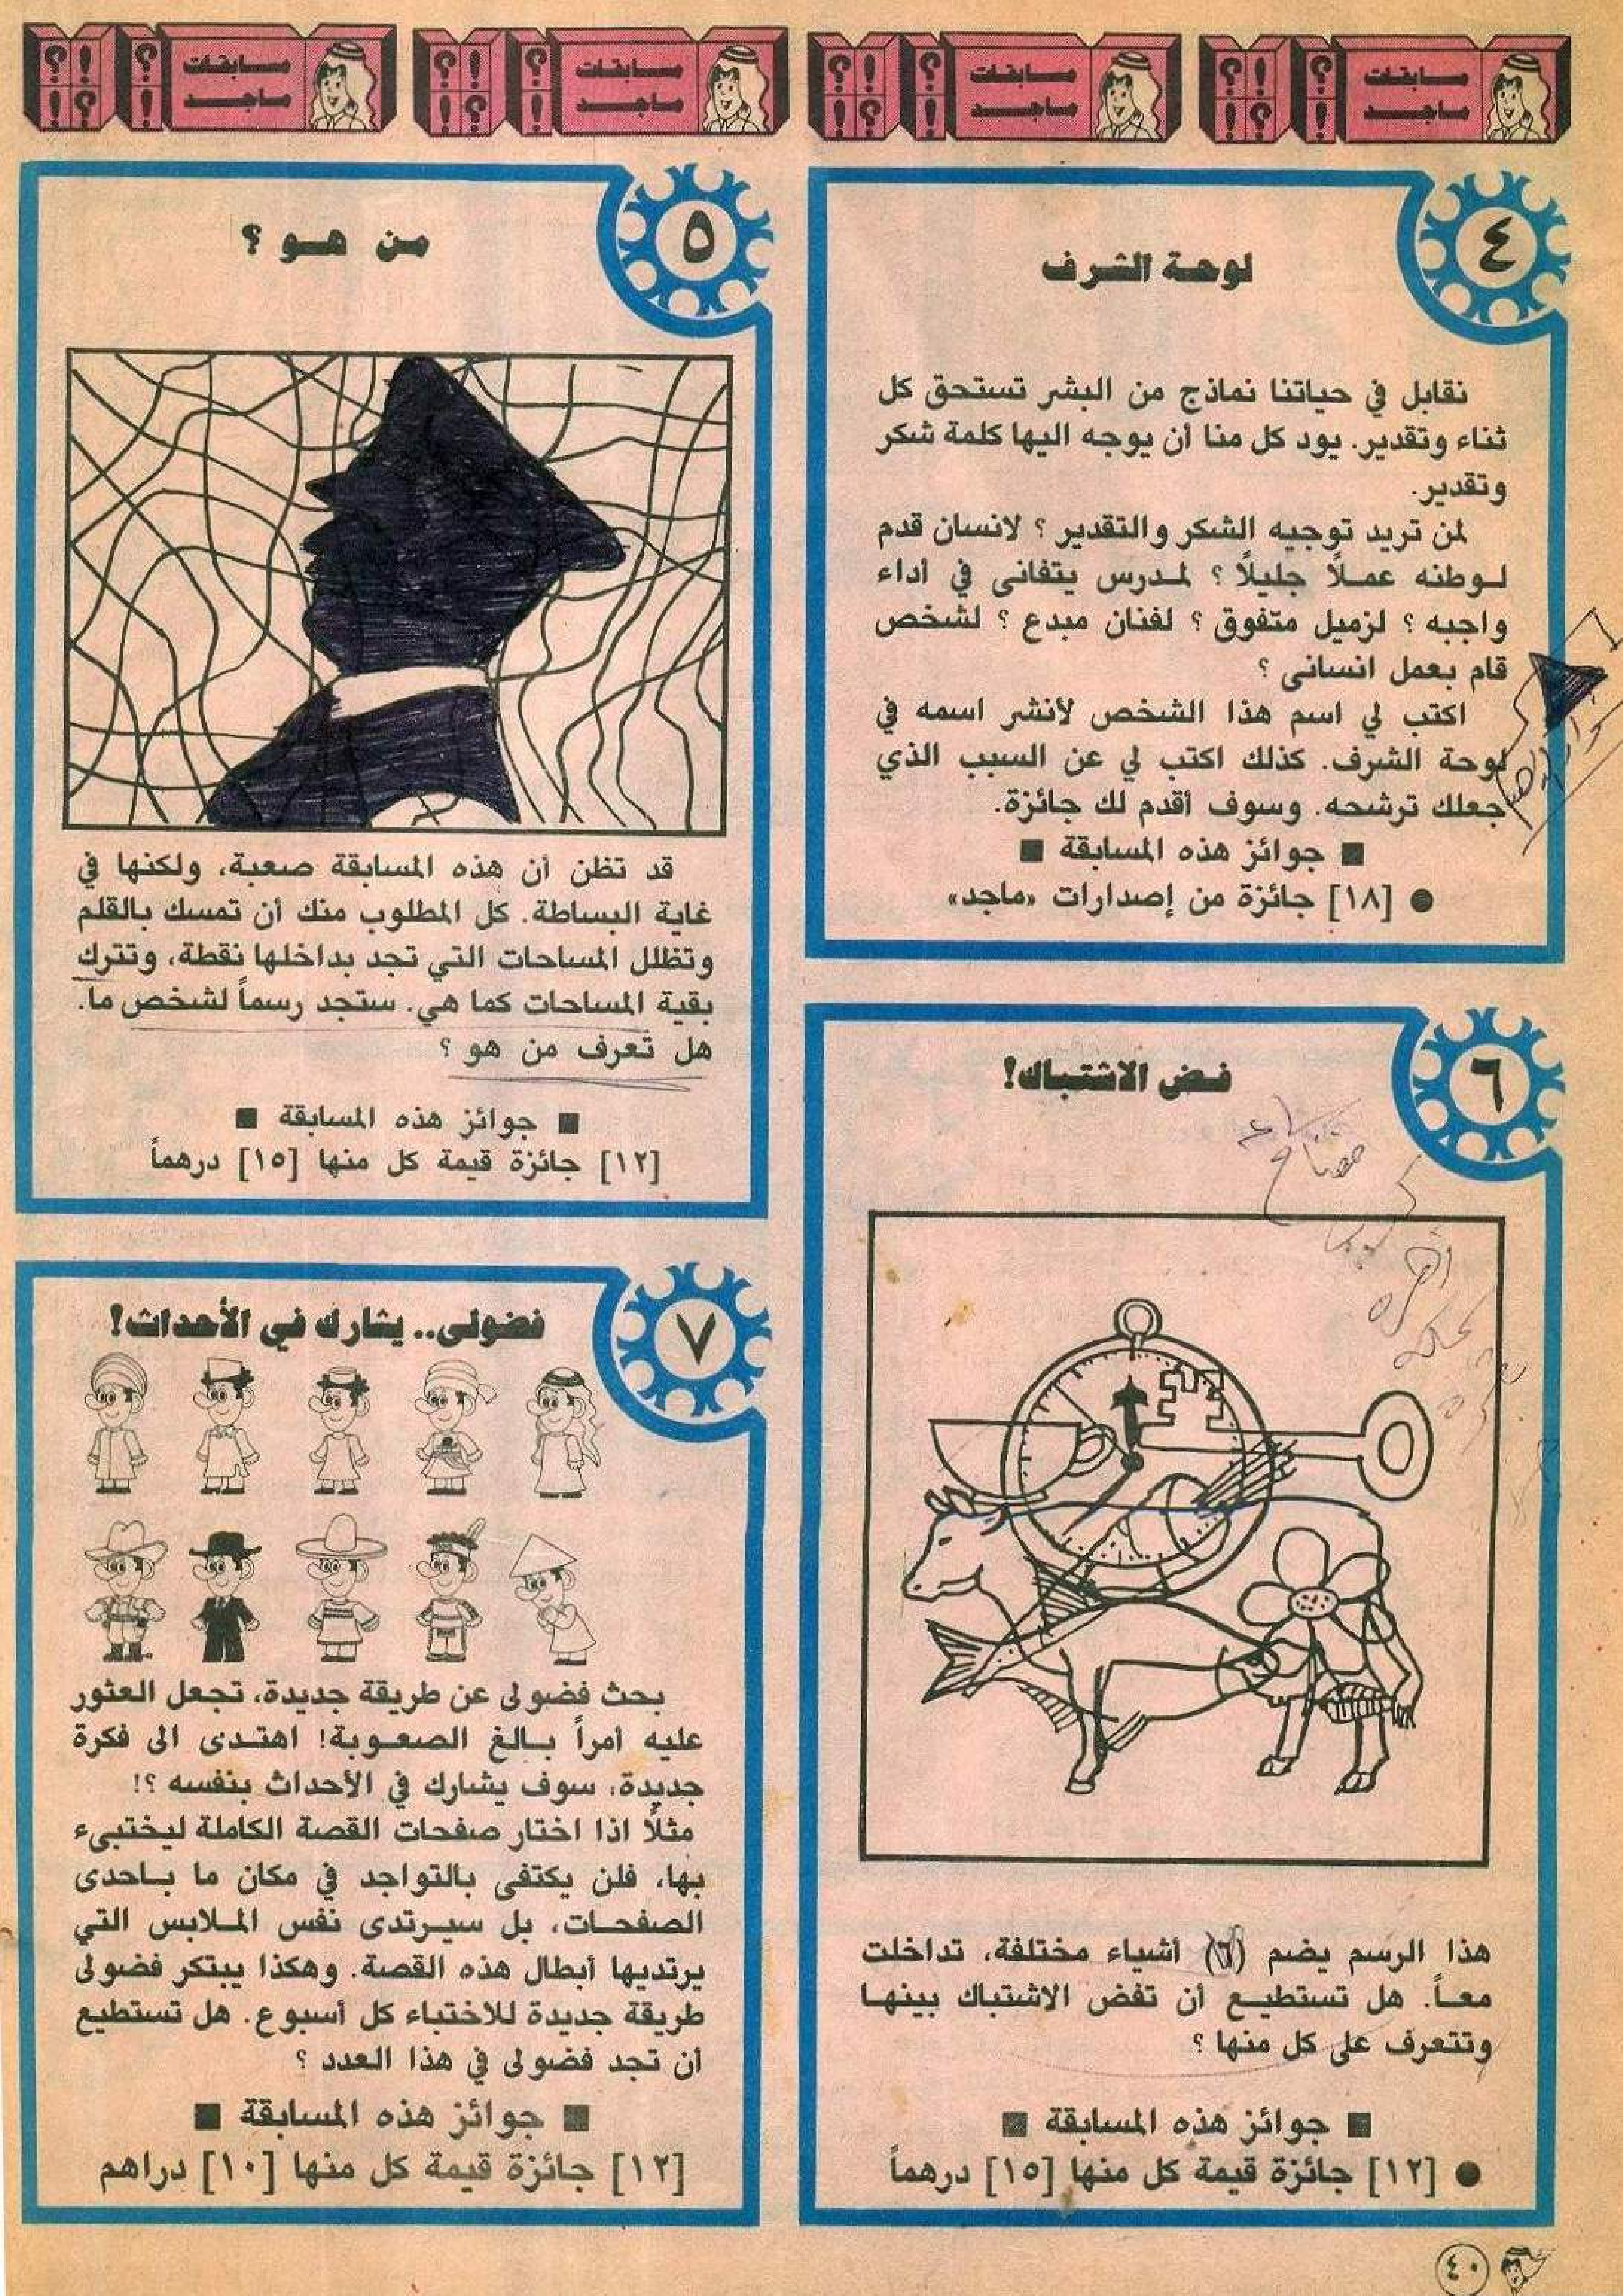 مسابقات ماجد
مسابقات ماجد
مسابقات ماجد
مسابقات ماجد
٤
لوحة الشرف
نقابل في حياتنا نماذج من البشر تستحق كل
ثناء وتقدير. يود كل منا أن يوجه اليها كلمة شكر
وتقدير.
لمن تريد توجيه الشكر والتقدير ؟ لانسان قدم
لوطنه عملاً جليلاً ؟ لمدرس يتفانى في أداء
واجبه ؟ لزميل متفوق ؟ لفنان مبدع ؟ لشخص
قام بعمل انسانى ؟
اكتب لي اسم هذا الشخص لأنشر اسمه في
لوحة الشرف. كذلك اكتب لي عن السبب الذي
جعلك ترشحه. وسوف أقدم لك جائزة.
■ جوائز هذه المسابقة ■
● [١٨] جائزة من إصدارات «ماجد»
٥
من هو ؟
قد تظن أن هذه المسابقة صعبة، ولكنها في
غاية البساطة. كل المطلوب منك أن تمسك بالقلم
وتظلل المساحات التي تجد بداخلها نقطة، وتترك
بقية المساحات كما هي. ستجد رسماً لشخص ما.
هل تعرف من هو ؟
■ جوائز هذه المسابقة ■
[١٢] جائزة قيمة كل منها [١٥] درهماً
٦
فض الاشتباك!
هذا الرسم يضم (٦) أشياء مختلفة، تداخلت
معاً. هل تستطيع أن تفض الاشتباك بينها
وتتعرف على كل منها ؟
■ جوائز هذه المسابقة ■
● [١٢] جائزة قيمة كل منها [١٥] درهماً
٧
فضولى.. يشارك في الأحداث!
بحث فضولى عن طريقة جديدة، تجعل العثور
عليه أمراً بالغ الصعوبة! اهتدى الى فكرة
جديدة، سوف يشارك في الأحداث بنفسه ؟!
مثلاً اذا اختار صفحات القصة الكاملة ليختبىء
بها، فلن يكتفى بالتواجد في مكان ما باحدى
الصفحات، بل سيرتدى نفس الملابس التي
يرتديها أبطال هذه القصة. وهكذا يبتكر فضولى
طريقة جديدة للاختباء كل أسبوع. هل تستطيع
أن تجد فضولى في هذا العدد ؟
■ جوائز هذه المسابقة ■
[١٢] جائزة قيمة كل منها [١٠] دراهم
٤٠